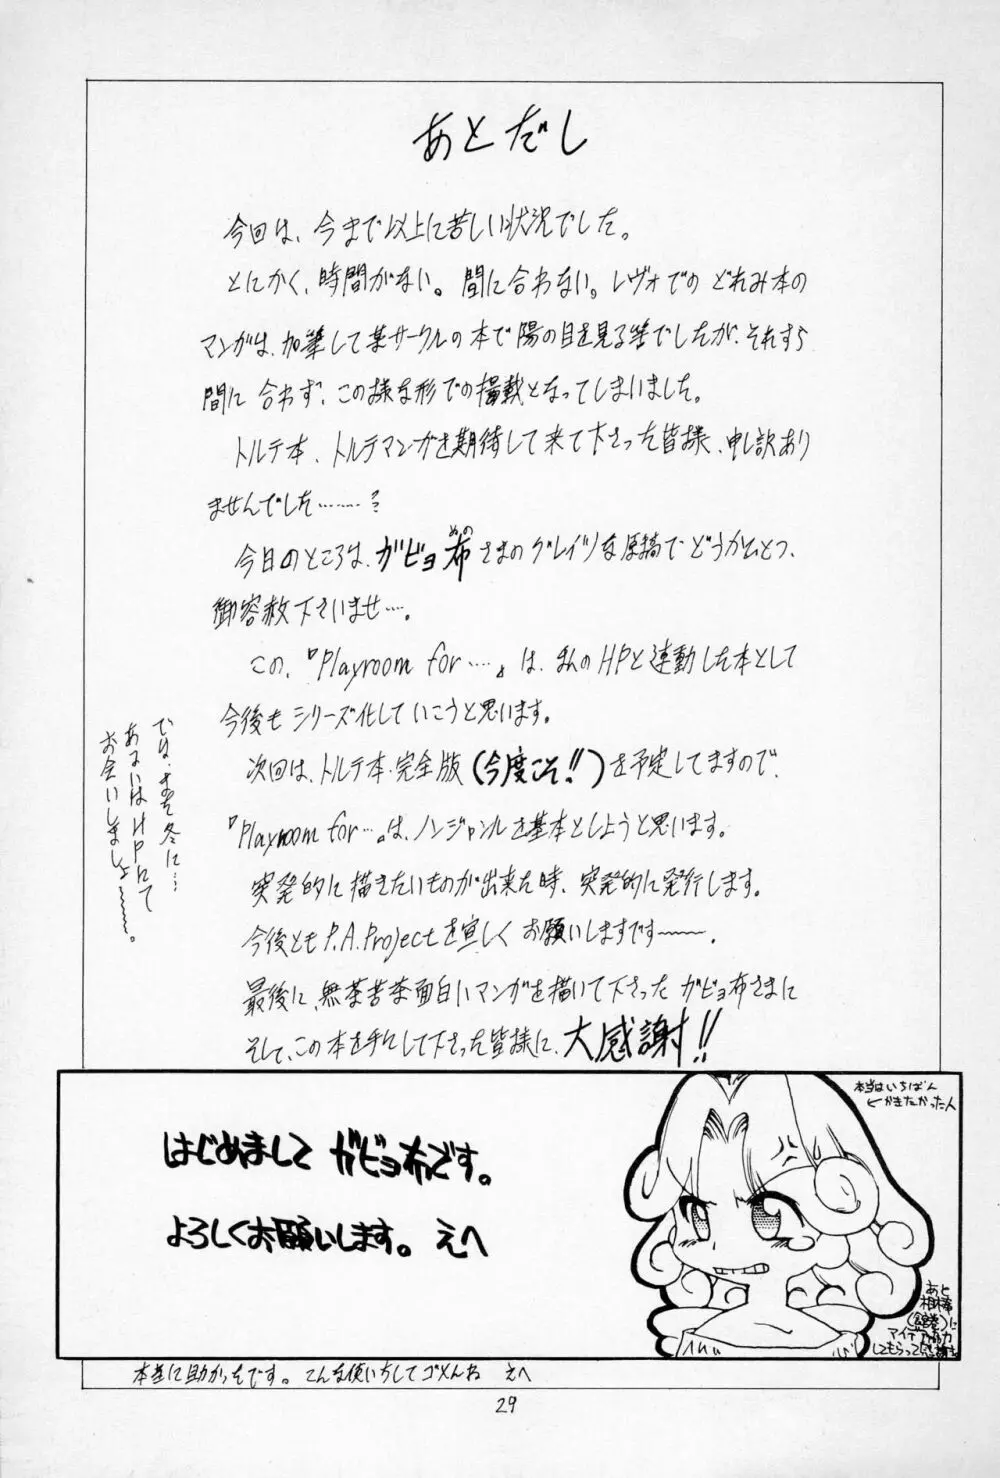 あとだし
今回は、今まで以上に苦しい状況でした。
とにかく、時間がない。間に合わない。レヴォでの どれみ本の
マンガは、加筆して某サークルの本で陽の目を見る筈でしたが、それすら
間に合わず、この様な形での掲載となってしまいました。
トルテ本、トルテマンガを期待して来て下さった皆様、申し訳あり
ませんでした………?
今日のところは、ガビョ布さまのグレイツな原稿でどうかひとつ、
めの
御容赦下さいませ…。
この、『Playroom for…』は、まんのHPと連動した本として
今後もシリーズ化していこうと思います。
次回は、トルテ本・完全版(今度こそ!!)を予定してますので、
『Playroom for…』は、ノンジャンルを基本としようと思います。
突発的に描きたいものが出来た時、突発的に発行します。
今後ともP.A.Projectを宜しくお願いしますです〜〜。
最後に、無茶苦茶面白いマンガを描いて下さったガビョ布さまに
そして、この本を手にして下さった皆様に、大感謝!!
では、また冬に…
あるいはHPにて
お会いしましょ〜〜。
はじめまして ガビョ布です。
よろしくお願いします。 えへ
本当はいちばん
←かきたかった人
あと
相棒
に
アイデア協力
してもらって感謝を
本当に助かったです。こんな使いちしてゴメんね えへ
29